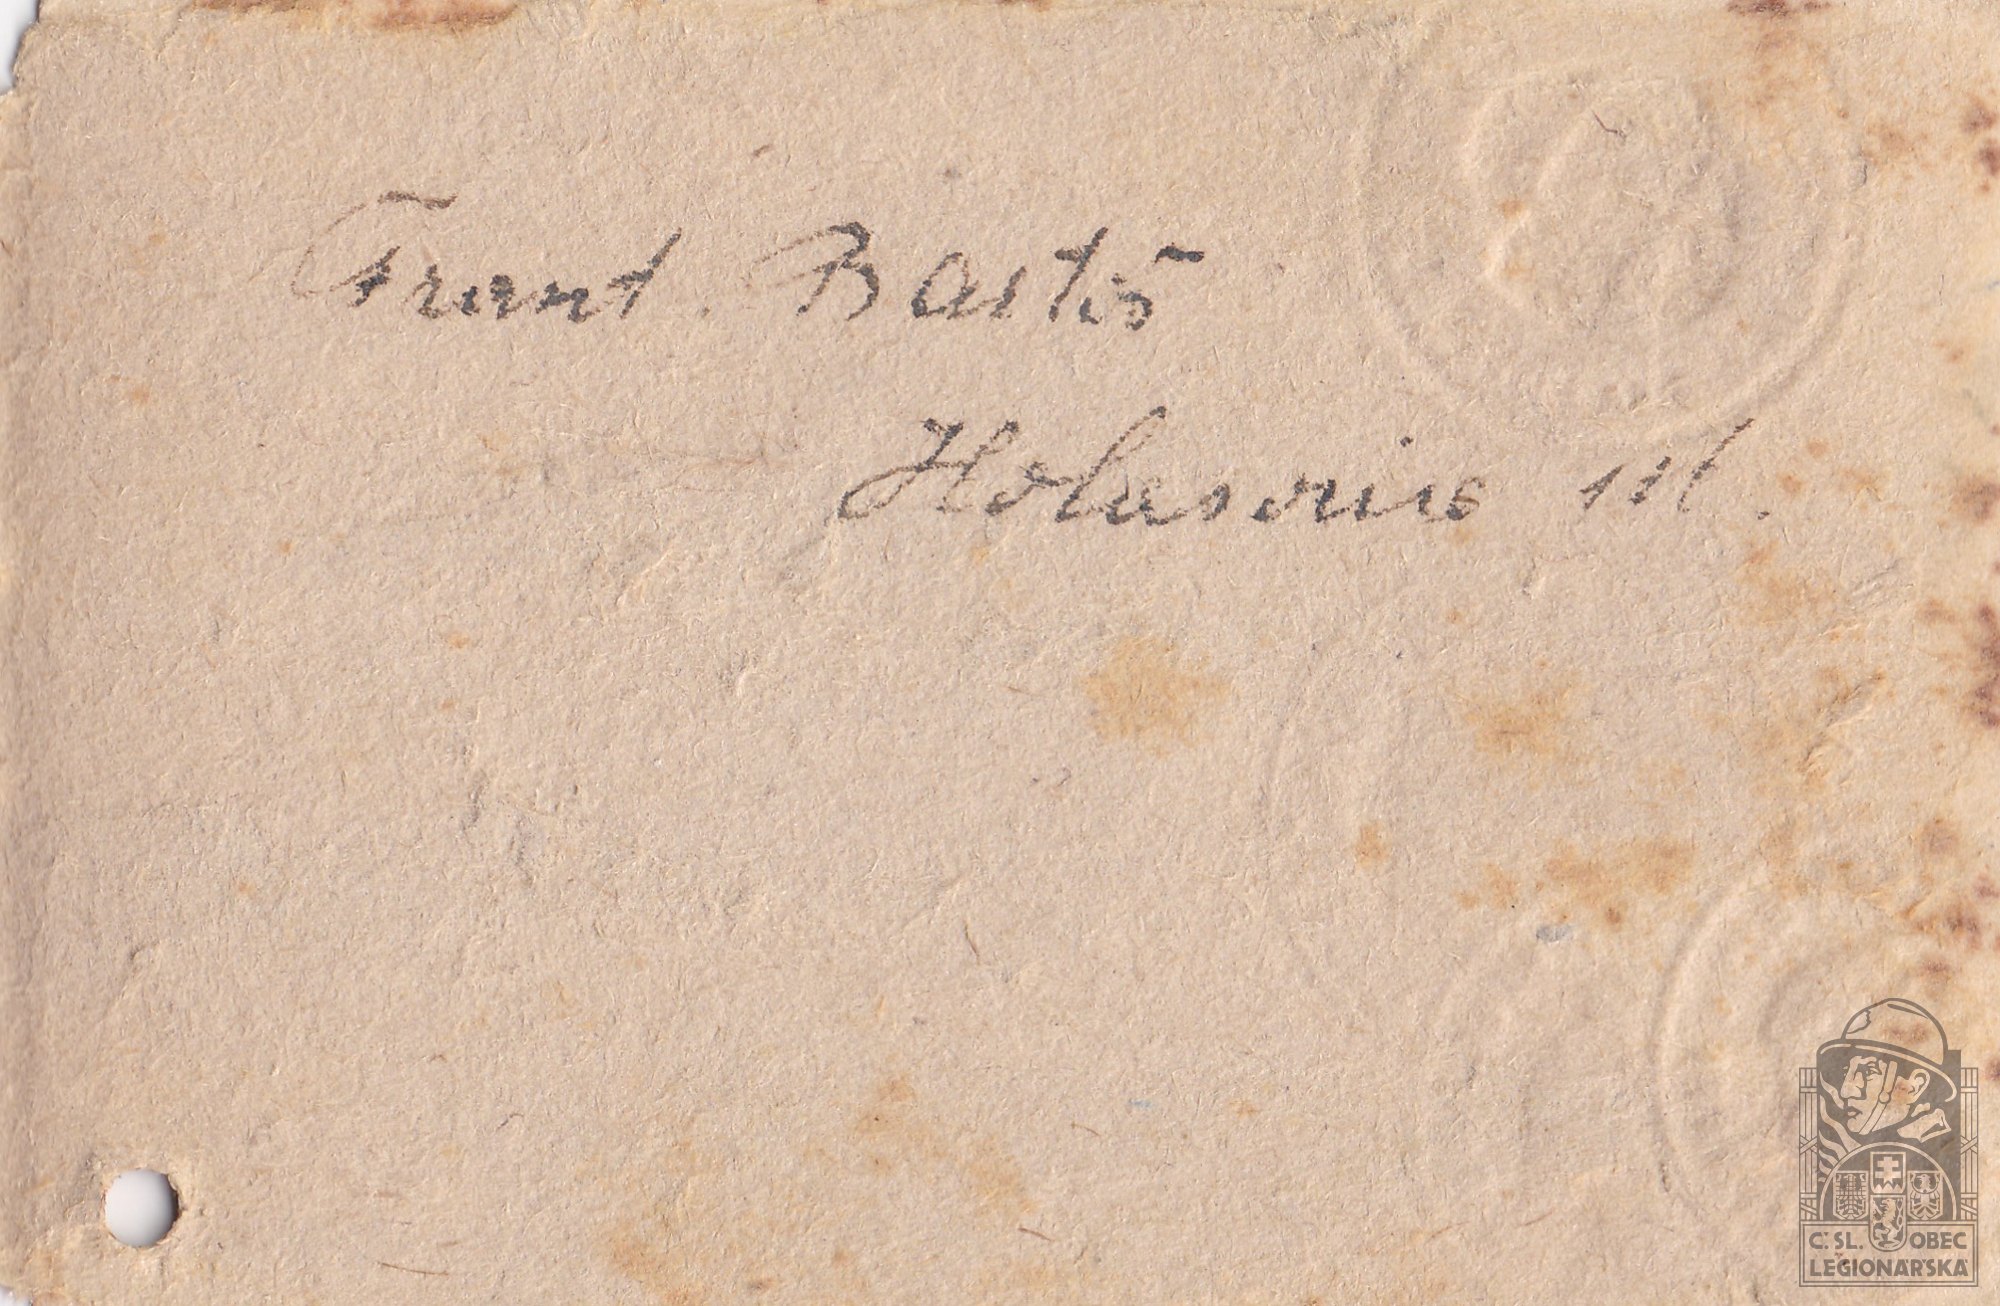 Frant. Bartoš
Holasovice 116.
Č. SL. OBEC
LEGIONÁŘSKÁ